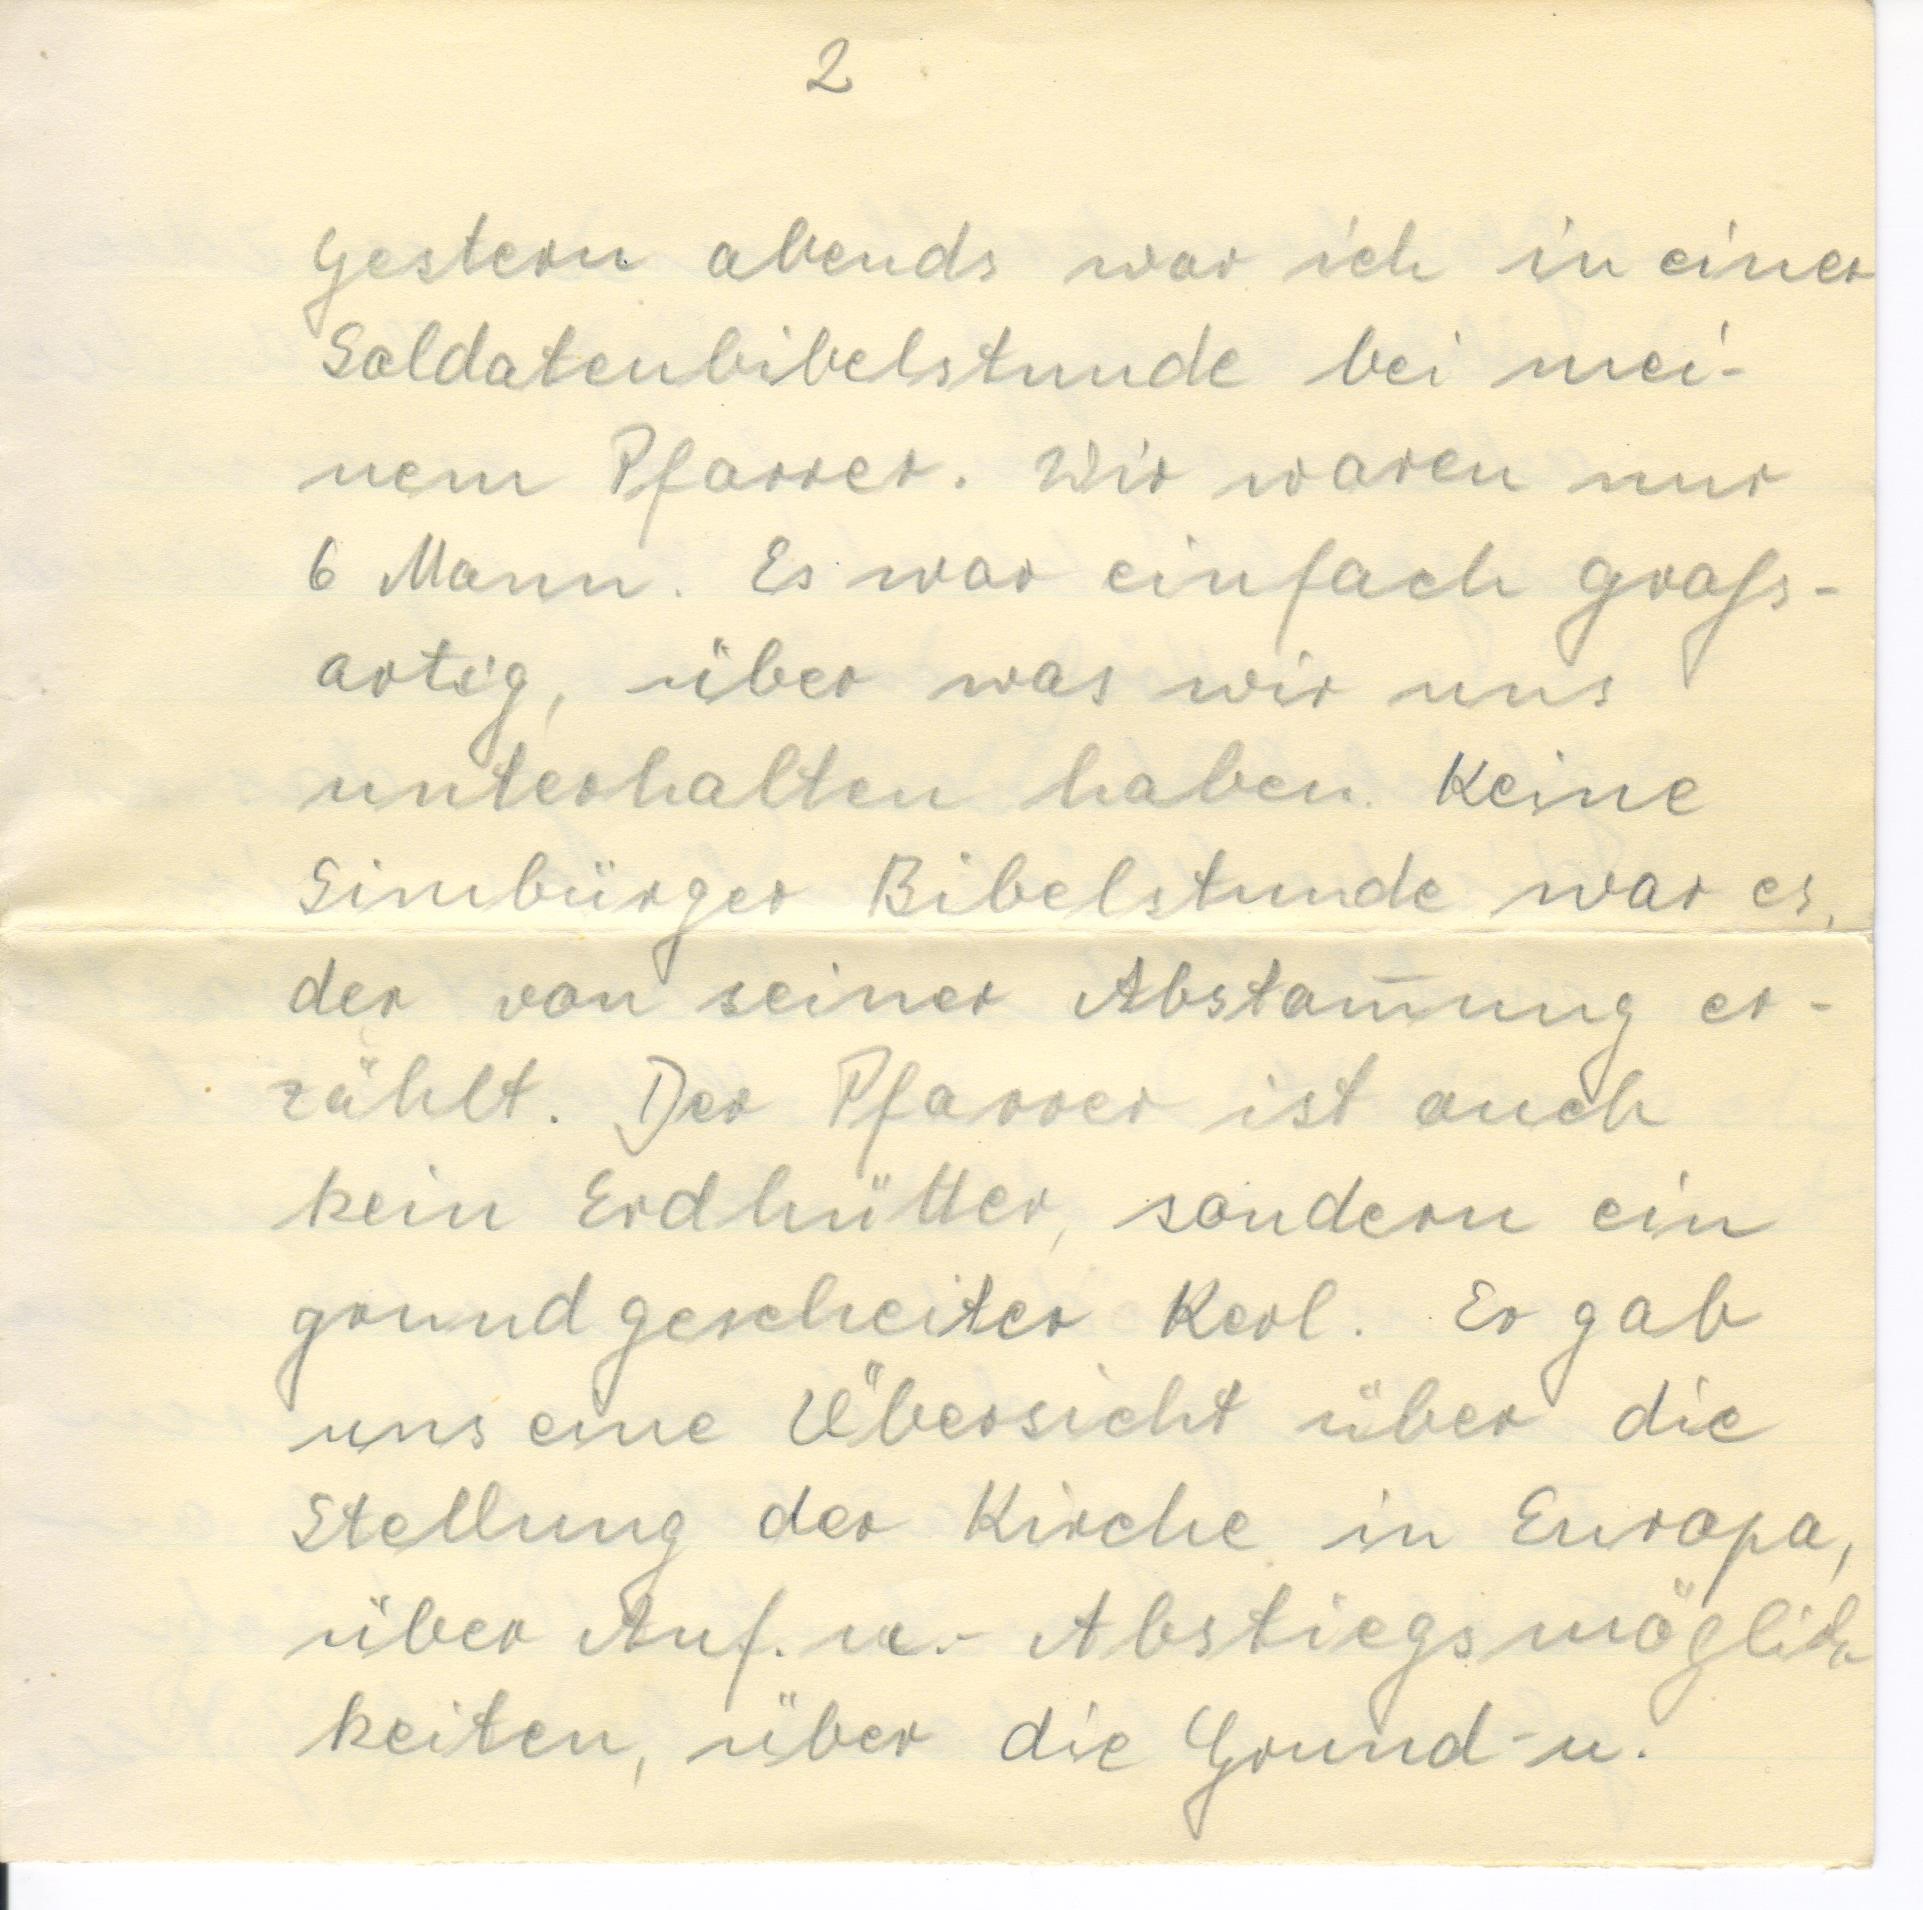 2
Gestern abends war ich in einer
Soldatenbibelstunde bei mei-
nem Pfarrer. Wir waren nur
6 Mann. Es war einfach gross-
artig, über was wir uns
unterhalten haben. Keine
Simbürger Bibelstunde war es,
der von seiner Abstam̅ung er-
zählt. Der Pfarrer ist auch
kein Erdhütter, sondern ein
grundgescheiter Kerl. Er gab
uns eine Übersicht über die
Stellung der Kirche in Europa,
über Auf. u.- Abstiegsmöglich
keiten, über die Grund-u.